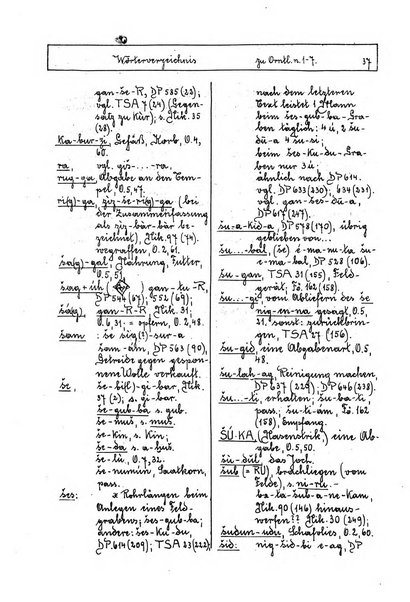 Wörterverzeichnis zu Orntl. n. 1-7. 37
gan-še-R, DP 585 (22);
vgl. TSA 7 (24) (Gegen-
satz zu Kür); s. Hik. 35
(28).
Ka-bur-zi, Gefäß, Korb, O.4,
60.
ra, vgl. giš....-ra.
rug-ga Abgabe an den Tem-
pel, O.5,47.
ri(g)-ga, ziz-še-ri(g)-ga (bei
der Zusammenfassung
als ziz-bár-bar be-
zeichnet), Hik. 97 (74).
vergraben, O.2, 66.
sa(g)-gal, Nahrung, Futter,
O.5,5
sag+úh gan-tu-R,
DP 544 (67); 552 (69);
šá(g): gan-R-R Hik. 31;
O.6,31: = opfern, O.2,48.
šam: še sig(?)-sur-a
šam-àm, DP 563 (90)
Getreide gegen gespon-
nene Wolle verkauft.
še, še-bi(l)-gi-bar, Hik.
37 (2); s. gi-bar.
še-gub-ba s. gub.
še-muš, s. muš.
še-kin, s. Kin.
še-da s. a-šuš.
še-lu, O.7, 32.
še-numun, Saatkorn,
pass.
šes: x Rohrlängen beim
Anlegen eines Feld-
grabens; šes-gub-ba;
andere: šes-Ku-du,
DP 614 (209); TSA 23 (222)
nach dem letzteren
Text leistet 1 Mann
beim šes-gub-ba-Gra-
ben täglich: 4 ú, 2 šu-
dù-a 4 šu-si;
beim šes-Ku-du-Gra-
ben nur 3 ú;
ähnlich nach DP 614.
vgl. DP 633 (230); 634 (231).
vgl. gan-šes-dù-a,
DP 617 (247).
šu-a-Kid-a, DP 578 (170), übrig
geblieben von...
šu...bal, (šè) é-ma-ni-ta šu-
e-ma-bal, DP 528 (106).
šu-gan, TSA 31 (155), Feld-
gerät; Fö. 162 (158).
šu...-gi, vom Abliefern des še
nig-en-na gesagt, O.5,
21. sonst: zurückbrin-
gen, TSA 27 (156)
šu-gid, eine Abgabenart, O.5,
48.
šu-lah-ag, Reinigung machen,
DP 637 (229); DP 646 (238).
šu...-ti, erhalten; šu-ba-ti,
pass.; šu-ti-àm, Fö. 162
(158), Empfang.
ŠÚ-KA, (Hasenstrik), eine Ab-
gabe, O.5,50.
šu-dul: das Joch.
šub (= RU), brachliegen (vom
Felde), s. ni-ru.-
ba-ta-sub-a-ne-Kam,
Hik. 90 (146) hinaus-
werfen?? Hik. 30 (249);
šudun-udu, Schafolies, O.2,60.
šid: nig-šid-bi e-ag, DP